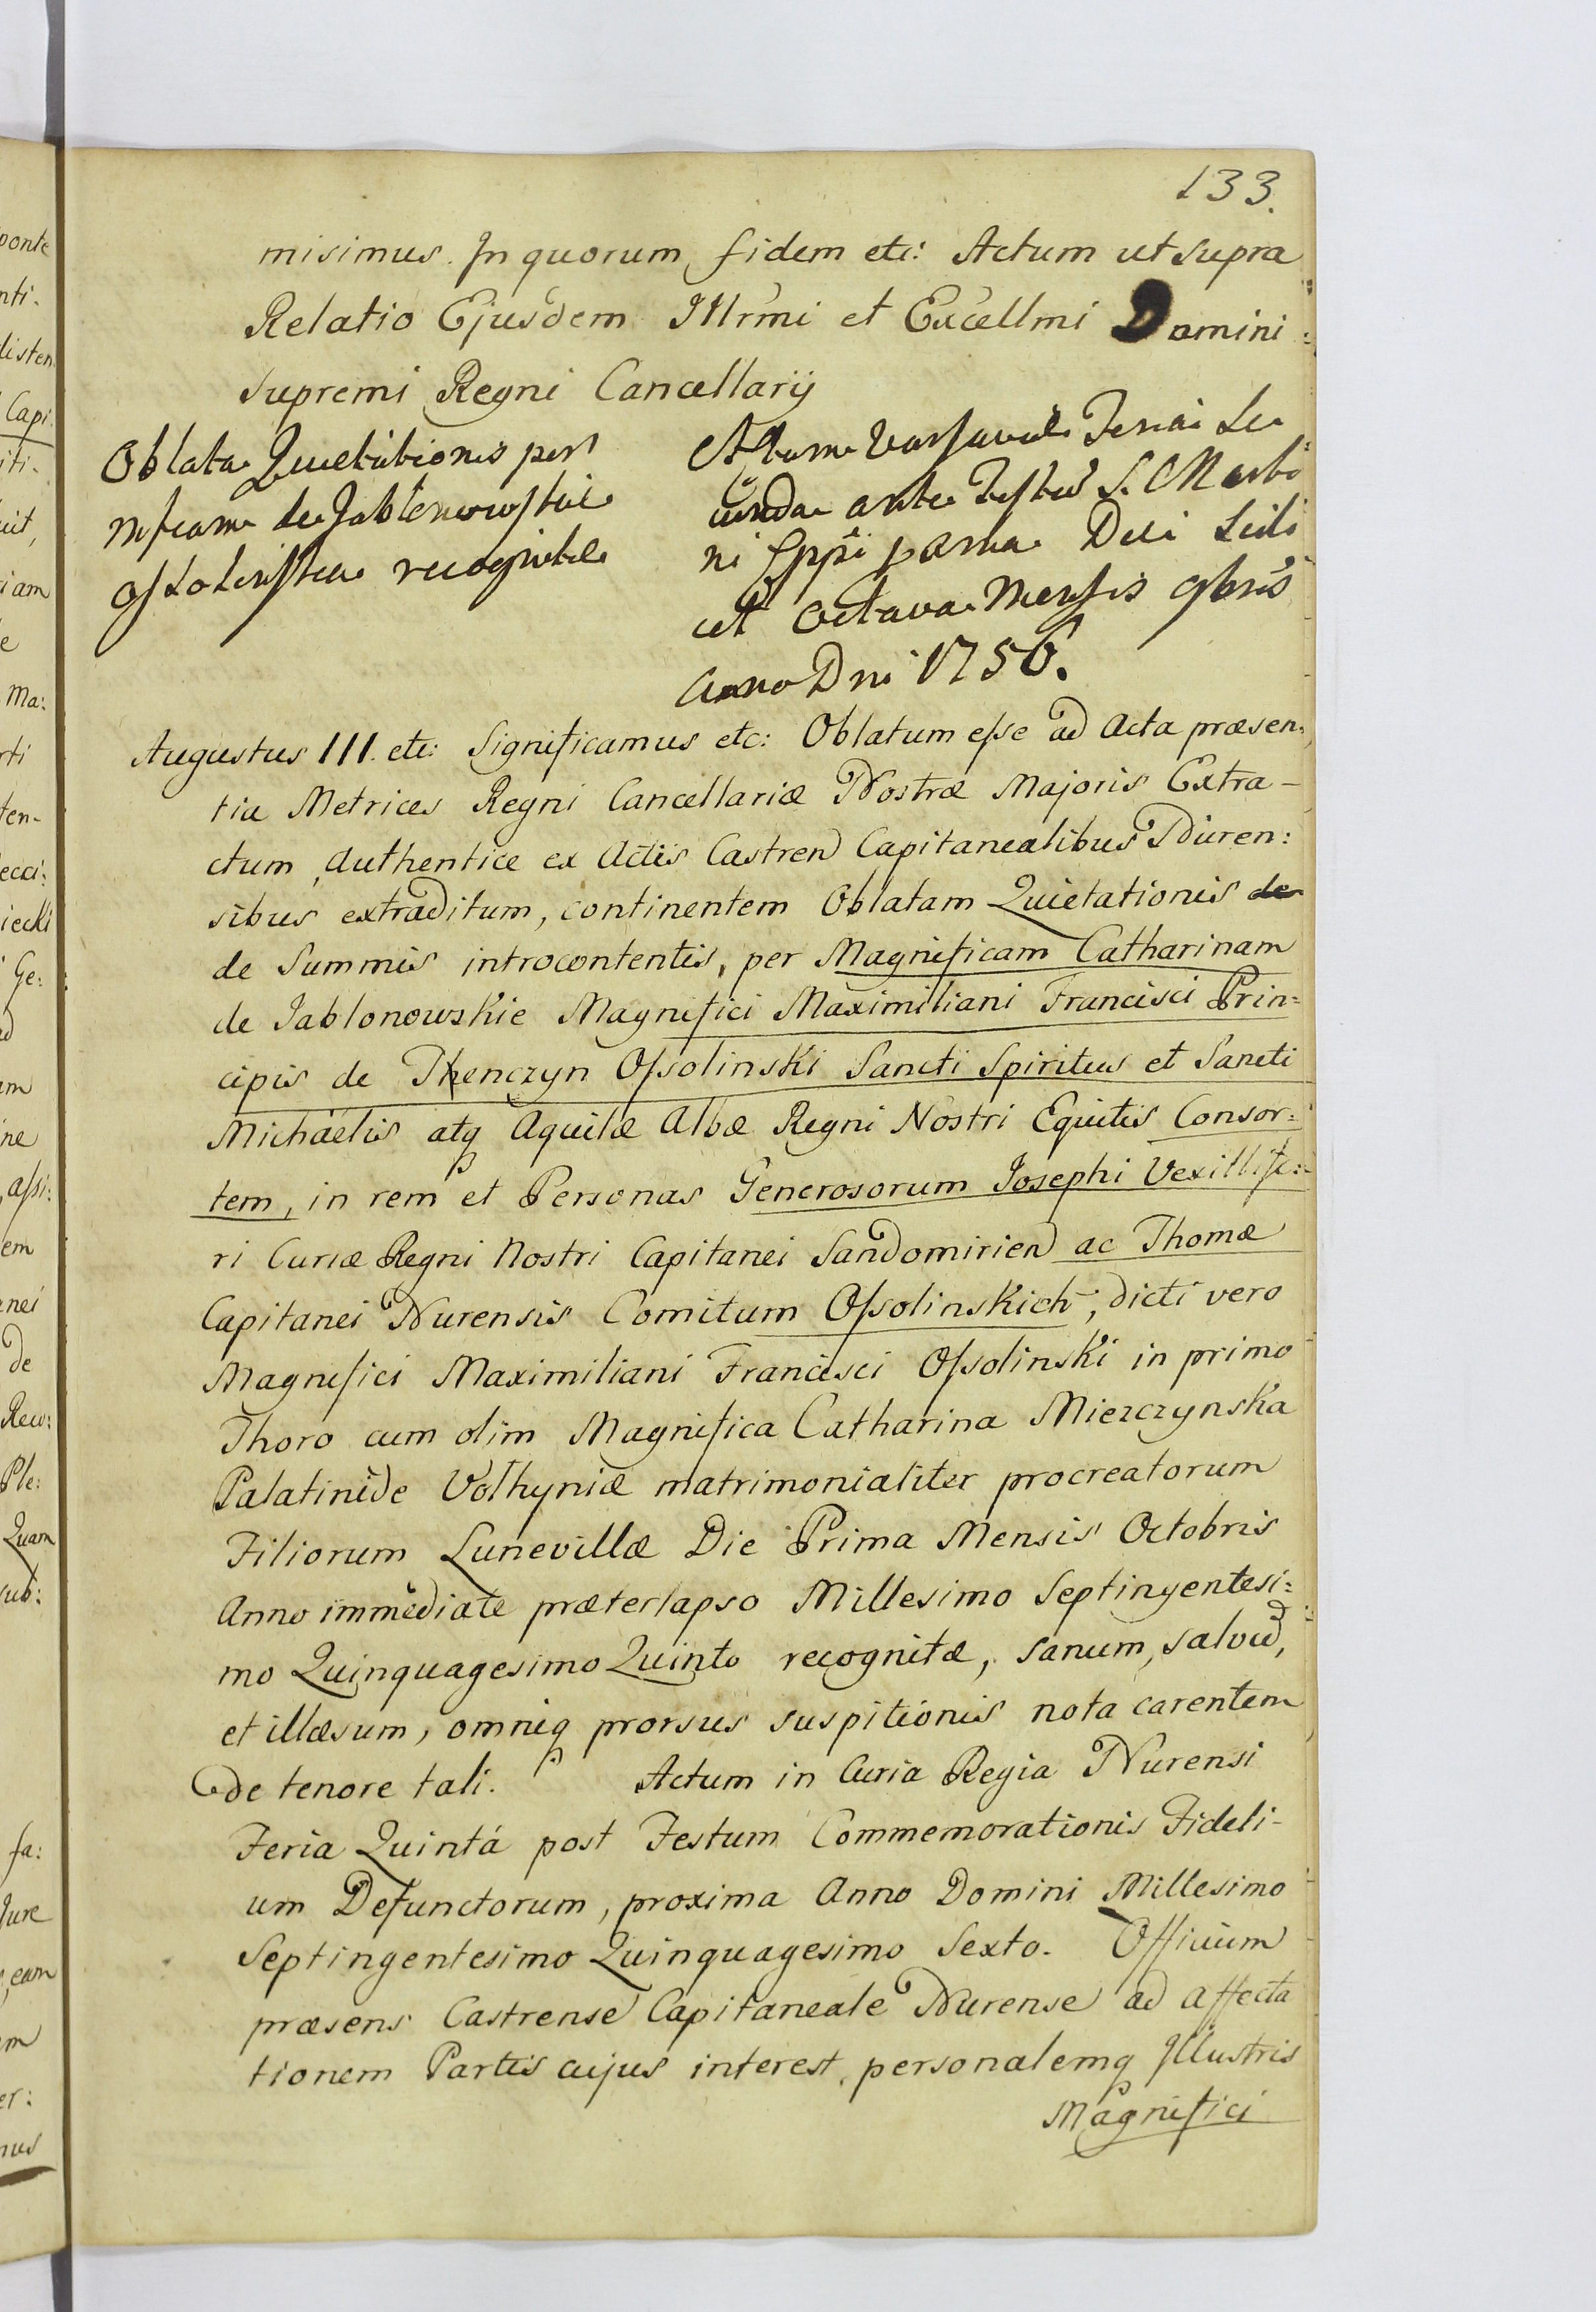 133.
misimus. In quorum fidem etc: Actum ut supra
Relatio Ejusdem Illrmi et Excellmi Domini
supremi Regni Cancellarij
Oblata Quietationis per
Mfcam de Jablonowskie
Ossolinska recognitae
Actum Varsaviae Feria Se
cunda ante Festum S. Marti
ni Eppi proxima Die scili
cet Octava Mensis 9bris
Anno Dni 1756.
Augustus III. etc: Significamus etc: Oblatum esse ad Acta præsen:
tia Metrices Regni Cancellariæ Nostræ Majoris Extra-
ctum, Authentice ex Actis Castren Capitanealibus Nuren:
sibus extraditum, continentem Oblatam Quietationis de
de Summis introcontentis, per Magnificam Catharinam
de Jablonowskie Magnifici Maximiliani Francisci Prin=
cipis de Thenczyn Ossolinski Sancti Spiritus et Sancti
Michäelis atq Aquilæ Albæ Regni Nostri Equitis Consor=
tem, in rem et Personas Generosorum Josephi Vexillife:
ri Curiæ Regni Nostri Capitanei Sandomirien ac Thomæ
Capitanei Nurensis Comitum Ossolinskich, dicti vero
Magnifici Maximiliani Francisci Ossolinski in primo
Thoro cum olim Magnifica Catharina Miezczynska
Palatinide Volhyniæ matrimonialiter procreatorum
Filiorum Lunevillæ Die Prima Mensis Octobris
Anno immediate præterlapso Millesimo Septingentesi=
mo Quinquagesimo Quinto recognitæ, sanum, salvũ,
et illæsum, omniq prorsus suspitionis nota carentem
de tenore tali. Actum in Curia Regia Nurensi
Feria Quintá post Festum Commemorationis Fideli-
um Defunctorum, proxima Anno Domini Millesimo
Septingentesimo Quinquagesimo Sexto. Officium
præsens Castrense Capitaneale Nurense ad affecta
tionem Partis cujus interest, personalemq Illustris
Magnifici